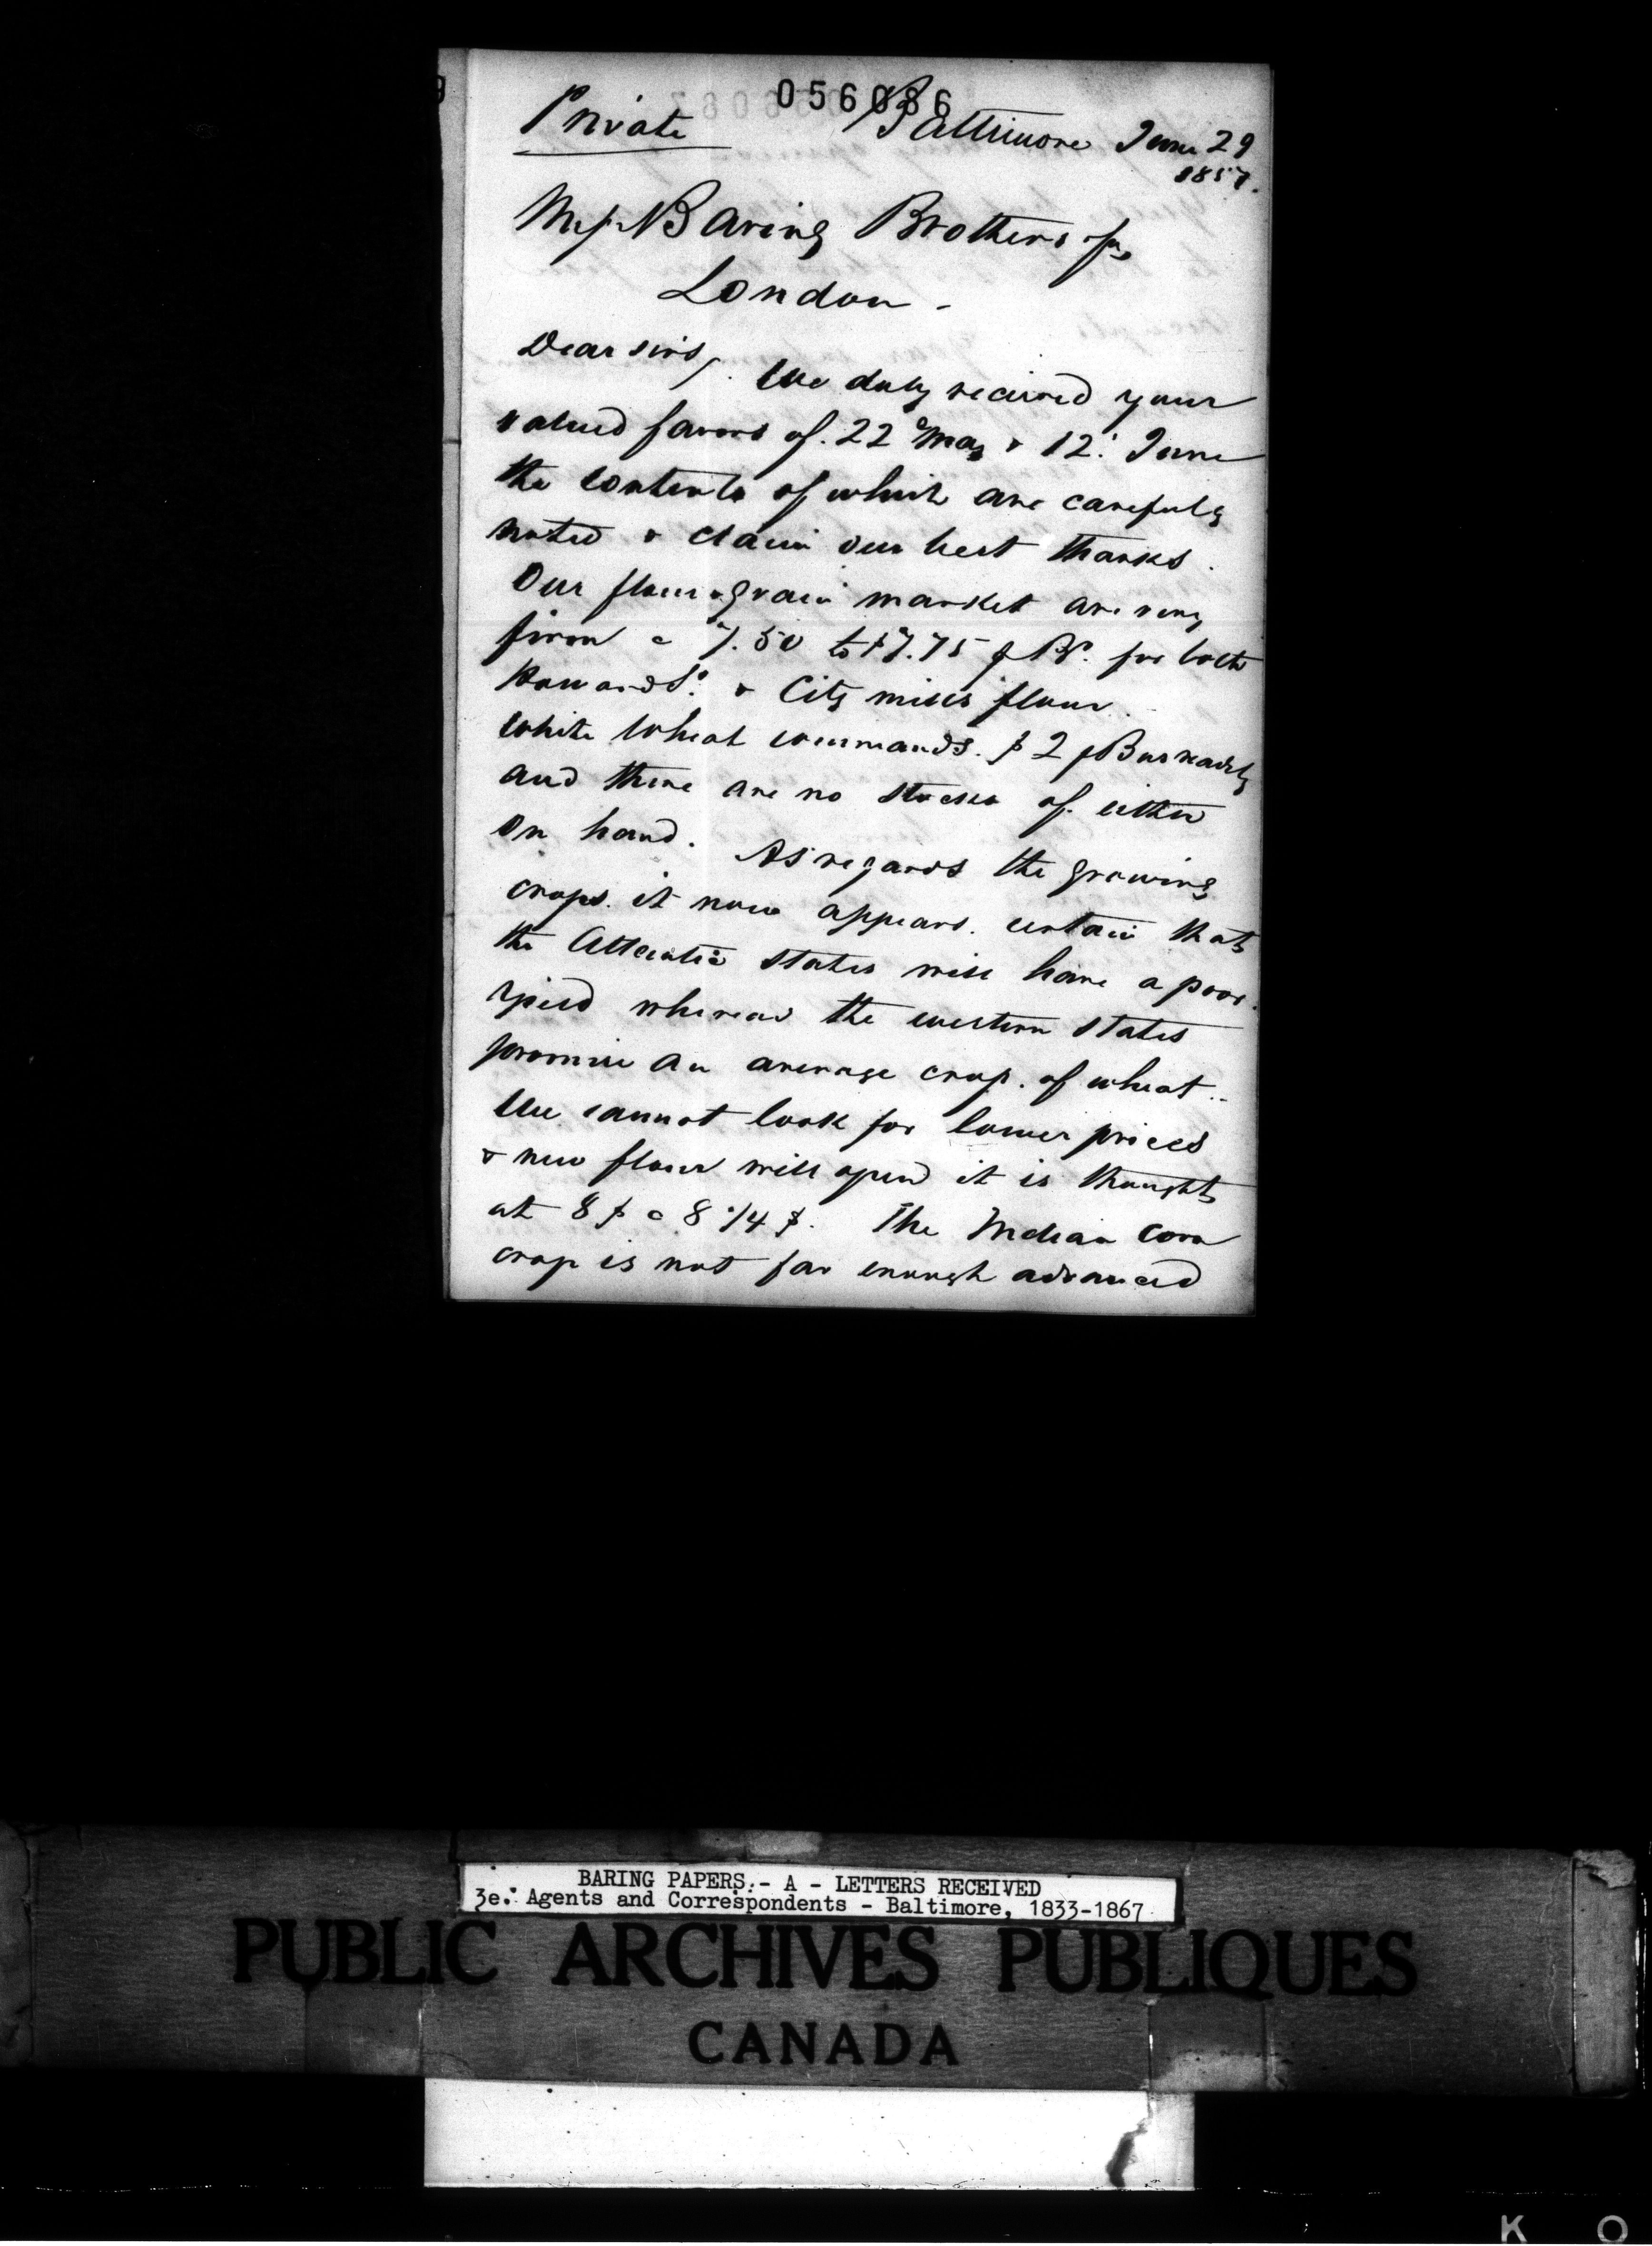 056086
Private Baltimore June 29
1857.
Baring Brothers
London -
Dear Sirs,
We duly received your
valued favors of. 22 May & 12. June
the contents of which are carefuly
noted & claim our best thanks.
Our flour & grain market are very
firm a 7.50 to $7.75 for both
Howard St. & City mills flour.
White Wheat commands. $2 readily
and there are no stocks of either
on hand. As regards the growing
crops. it now appears. certain that
the Atlantic States will have a poor
yield whereas the western States
promise an average crop. of wheat..
We cannot look for lower prices
& new flour will open it is thought
at 8 $ a 8 1/4 $. The Indian Corn
crop is not far enough advanced
BARING PAPERS.- A - LETTERS RECEIVED
3e. Agents and Correspondents - Baltimore, 1833-1867
PUBLIC ARCHIVES PUBLIQUES
CANADA
K O